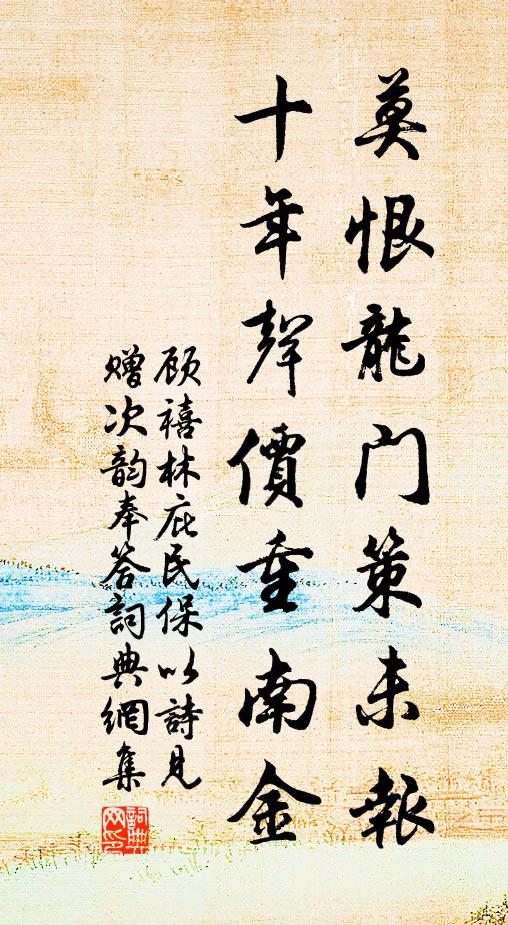 莫恨龍门策未報
十年聲價重南金
顾禧林庇民保以詩見
赠次韵奉答詞典網集
詞典网印